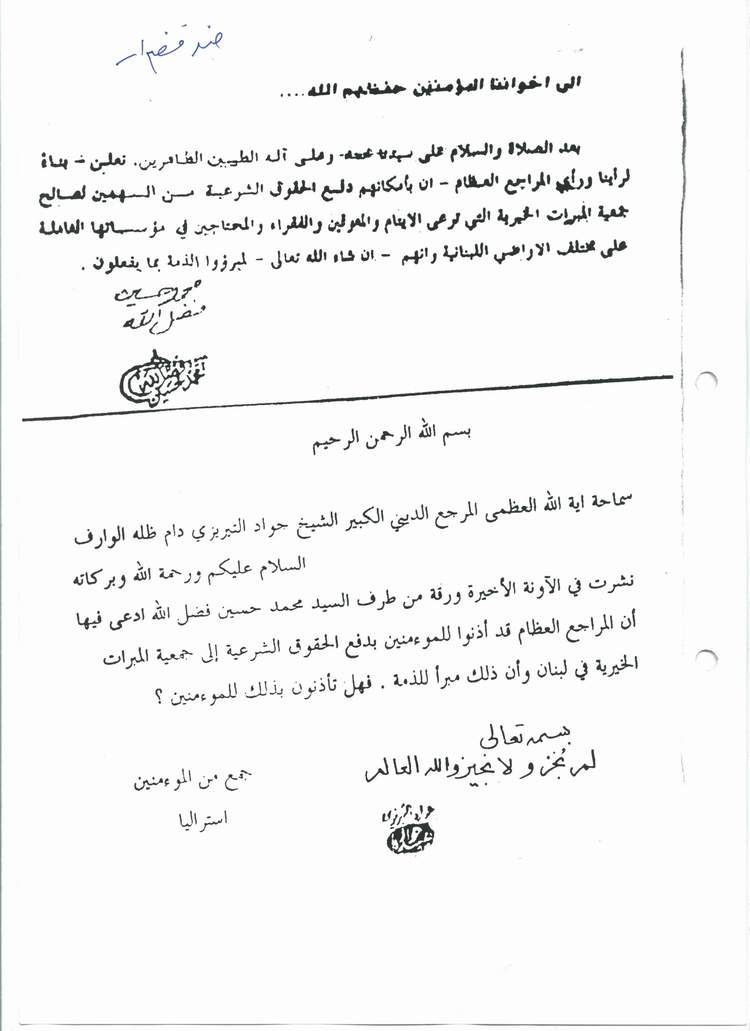 الى اخواننا المؤمنين حفظهم الله ....
بعد الصلاة والسلام على سيدنا محمد وعلى آله الطيبين الطاهرين. نعلن - بناءً
لرأينا ورأي المراجع العظام - ان بأمكانهم دفع الحقوق الشرعية من السهمين لصالح
جمعية المبرات الخيرية التي ترعى الايتام والمعوقين والفقراء والمحتاجين في مؤسساتها العاملة
على مختلف الاراضي اللبنانية وانهم - ان شاء الله تعالى - لمبرؤوا الذمة بما يفعلون .
محمد حسين
فضل الله
بسم الله الرحمن الرحيم
سماحة اية الله العظمى المرجع الديني الكبير الشيخ جواد التبريزي دام ظله الوارف
السلام عليكم ورحمة الله وبركاته
نشرت في الآونة الأخيرة ورقة من طرف السيد محمد حسين فضل الله ادعى فيها
أن المراجع العظام قد أذنوا للموءمنين بدفع الحقوق الشرعية إلى جمعية المبرات
الخيرية في لبنان وأن ذلك مبرأ للذمة . فهل تأذنون بذلك للموءمنين ؟
بسمه تعالى
لم نُجز و لا نجيز والله العالم
جمع من الموءمنين
استراليا
جواد التبريزي